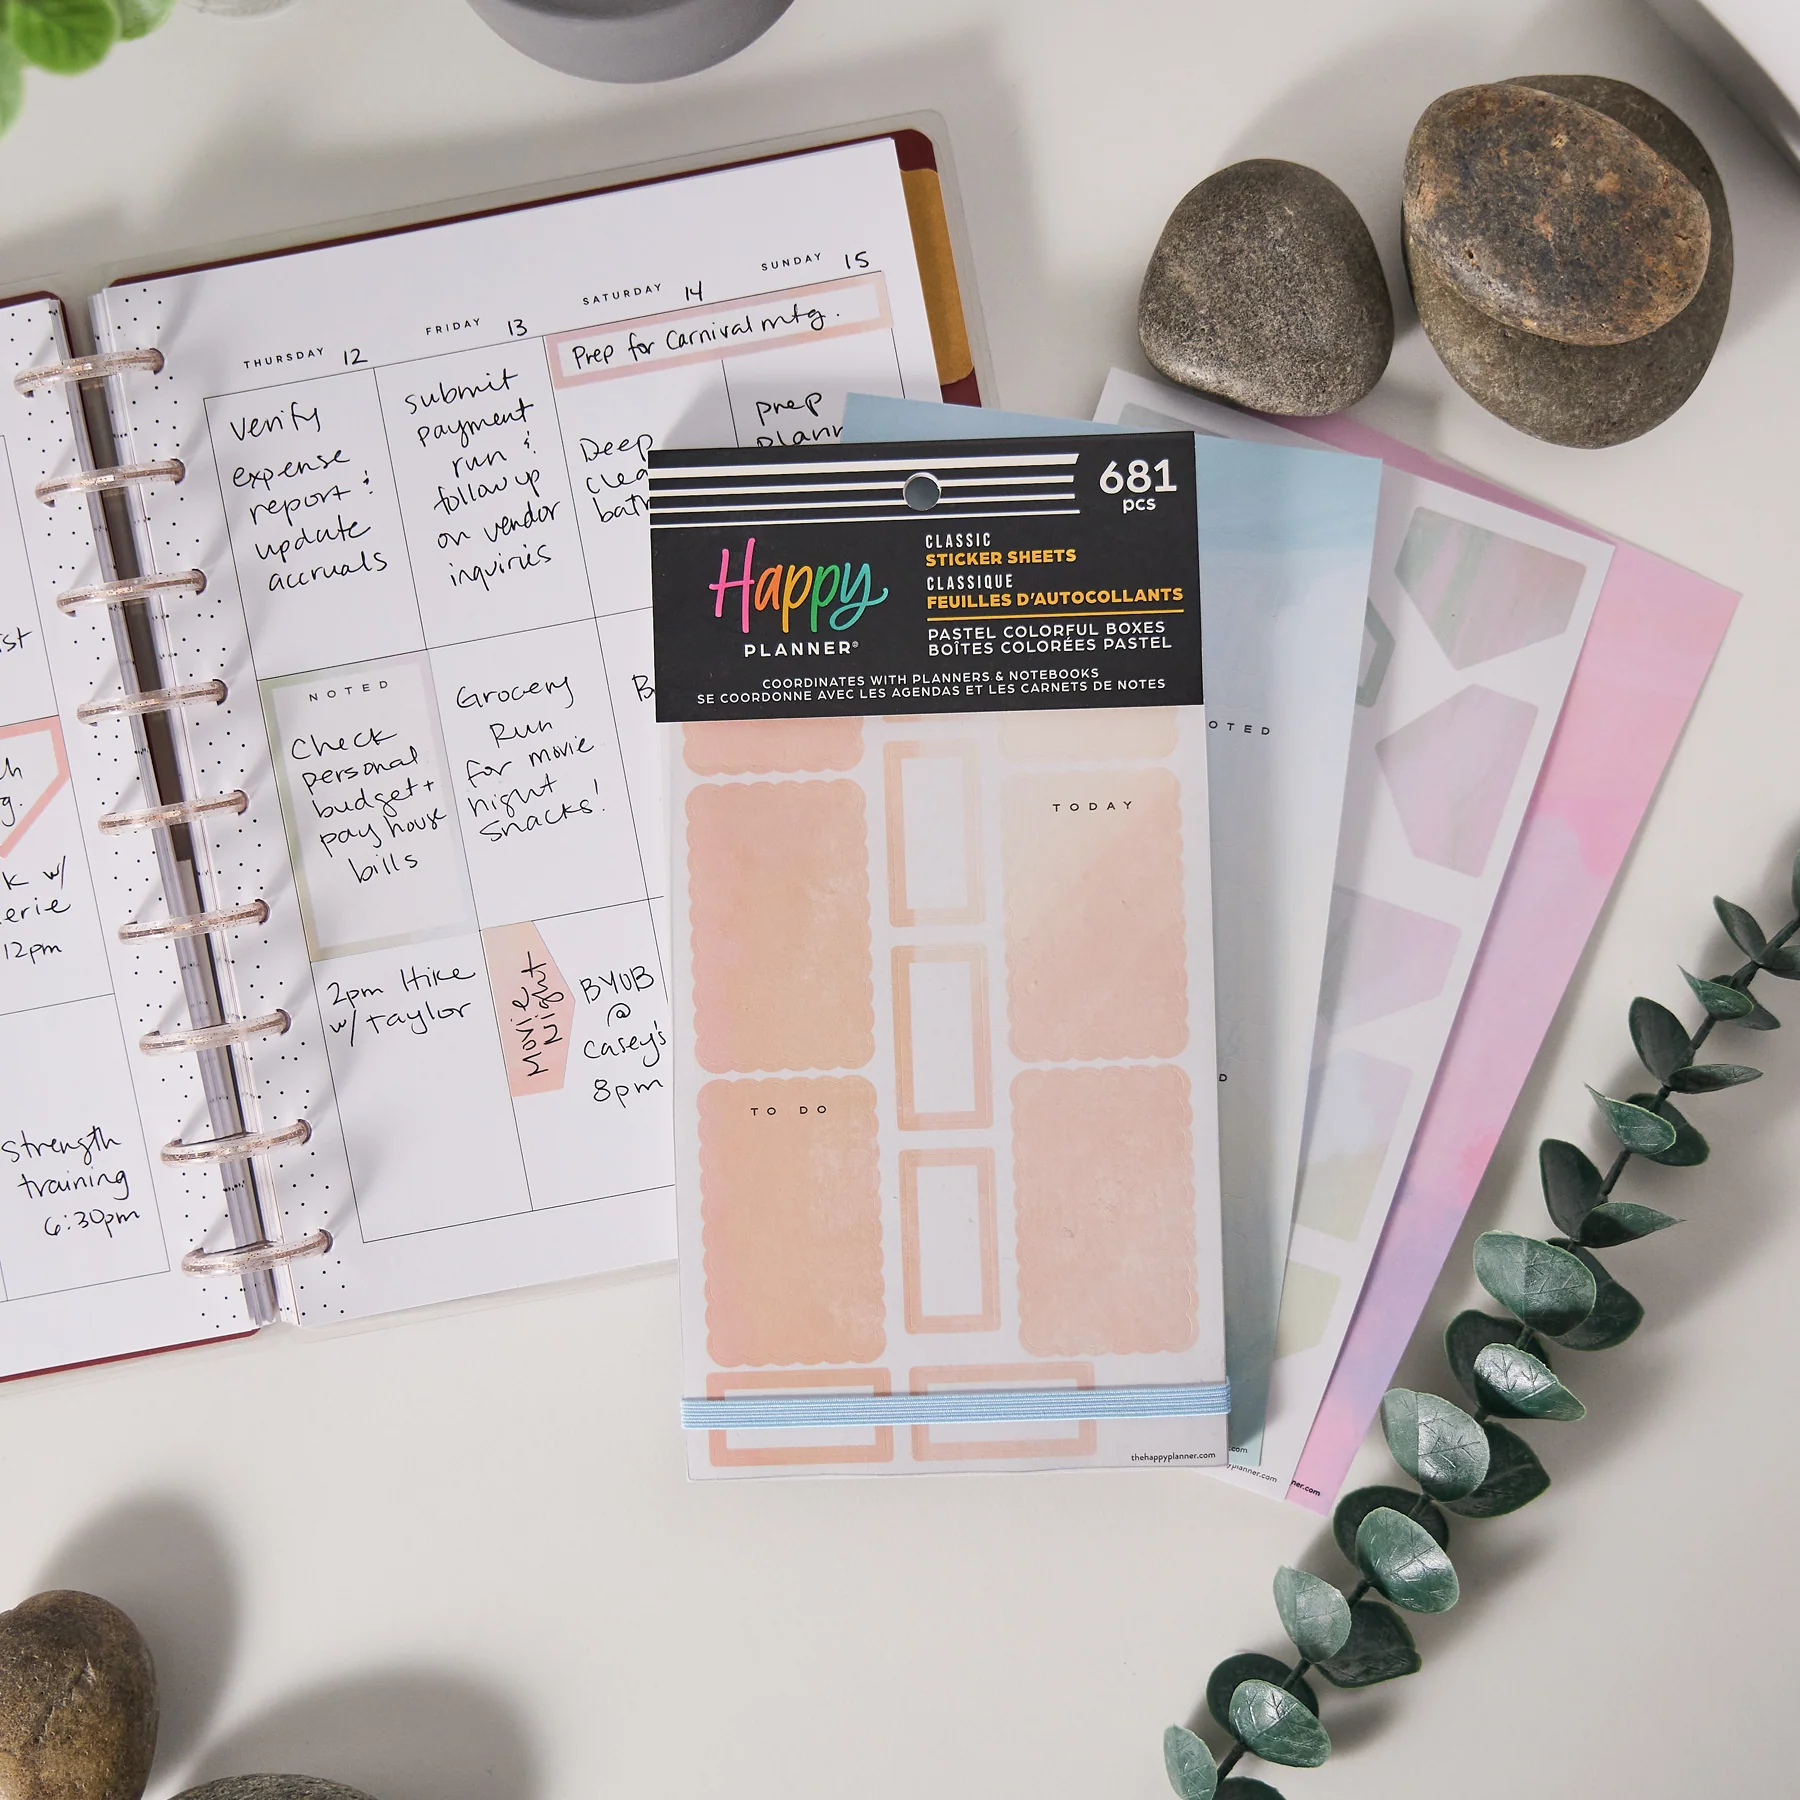 THURSDAY 12
verify
expense
report &
update
accruals
NOTED
Check
personal
budget +
pay house
bills
2pm Hike
w/ Taylor
FRIDAY 13
submit
payment
run &
follow up
on vendor
inquiries
Grocery
Run
for movie
night
snacks!
Movie
Night
BYOB
@
Casey's
8pm
SATURDAY 14
SUNDAY 15
Prep for Carnival mtg.
Deep
prep
12pm
strength
training
6:30pm
681
pcs
Happy
PLANNER®
CLASSIC
STICKER SHEETS
CLASSIQUE
FEUILLES D'AUTOCOLLANTS
PASTEL COLORFUL BOXES
BOÎTES COLORÉES PASTEL
COORDINATES WITH PLANNERS & NOTEBOOKS
SE COORDONNE AVEC LES AGENDAS ET LES CARNETS DE NOTES
TODAY
TO DO
thehappyplanner.com